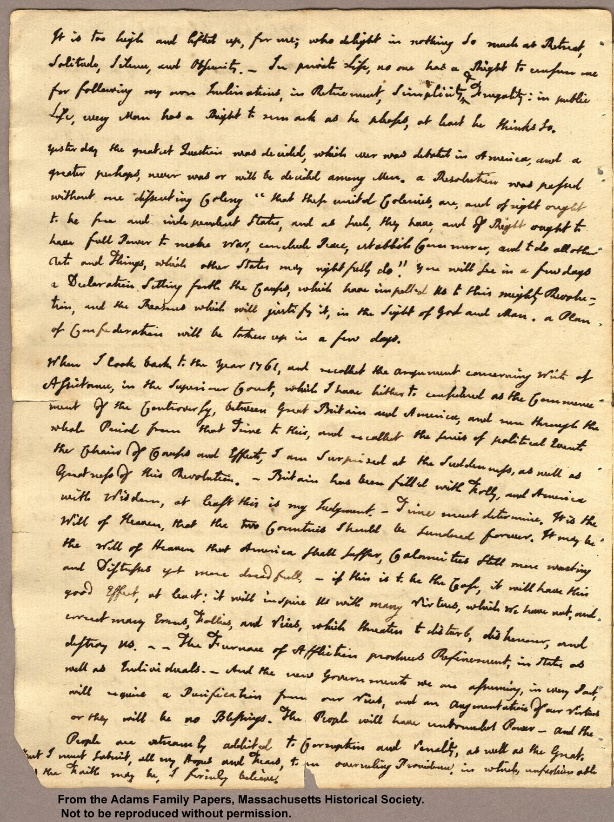 It is too high and lifted up, for me; who delight in nothing so much as Retreat,
Solitude, Silence, and Obscurity. — In private Life, no one has a Right to censure me
for following my own Inclinations, in Retirement, Simplicity, & Frugality: in public
Life, every Man has a Right to remark as he pleases, at least he thinks so.
Yesterday the greatest Question was decided, which ever was debated in America, and a
greater perhaps, never was or will be decided among Men. a Resolution was passed
without one dissenting Colony "that these united Colonies, are, and of right ought
to be free and independent States, and as such, they have, and of Right ought to
have full Power to make War, conclude Peace, establish Commerce, and to do all other
Acts and Things, which other States may rightfully do." you will see in a few days
a Declaration setting forth the Causes, which have impelled Us to this mighty Revolu-
tion, and the Reasons which will justify it, in the Sight of God and Man. a Plan
of Confederation will be taken up in a few days.
When I look back to the Year 1761, and recollect the Argument concerning Writs of
Assistance, in the Superiour Court, which I have hitherto considered as the Commence-
ment of the Controversy, between Great Britain and America, and run through the
whole Period from that Time to this, and recollect the series of political Events
the Chain of Causes and Effects, I am surprised at the Suddenness, as well as
Greatness of this Revolution. — Britain has been fill'd with Folly, and America
with Wisdom, at least this is my Judgment. — Time must determine. It is the
Will of Heaven, that the two Countries should be sundered forever. It may be
the Will of Heaven that America shall suffer Calamities still more wasting
and Distresses yet more dreadfull. — if this is to be the Case, it will have this
good Effect, at least: it will inspire Us with many Virtues, which We have not, and
correct many Errors, Follies, and Vices, which threaten to disturb, dishonour, and
destroy Us. — — The Furnace of Affliction produces Refinement, in States as
well as Individuals. — And the new Governments we are assuming, in every Part,
will require a Purification from our Vices, and an Augmentation of our Virtues
or they will be no Blessings. The People will have unbounded Power — And the
People are extreamly addicted to Corruption and Venality, as well as the Great.
But I must submit all my Hopes and Fears, to an overruling Providence, in which, unfashionable
as the Faith may be, I firmly believe.
From the Adams Family Papers, Massachusetts Historical Society.
Not to be reproduced without permission.